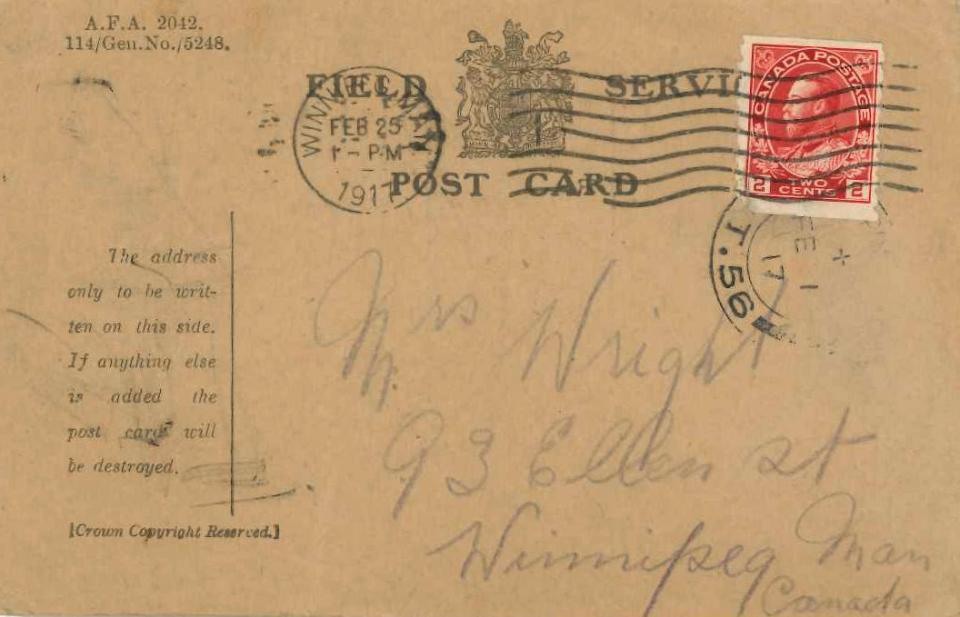 A.F.A. 2042.
114/Gen.No./5248.
FIELD SERVI
POST CARD
WINN MAN
FEB 25
1 - PM
1917
CANADA POSTAGE
2 TWO CENTS 2
T.56
FE 1
17
The address
only to be writ-
ten on this side.
If anything else
is added the
post card will
be destroyed.
[Crown Copyright Reserved.]
Mrs Wright
93 Ellen st
Winnipeg Man
Canada